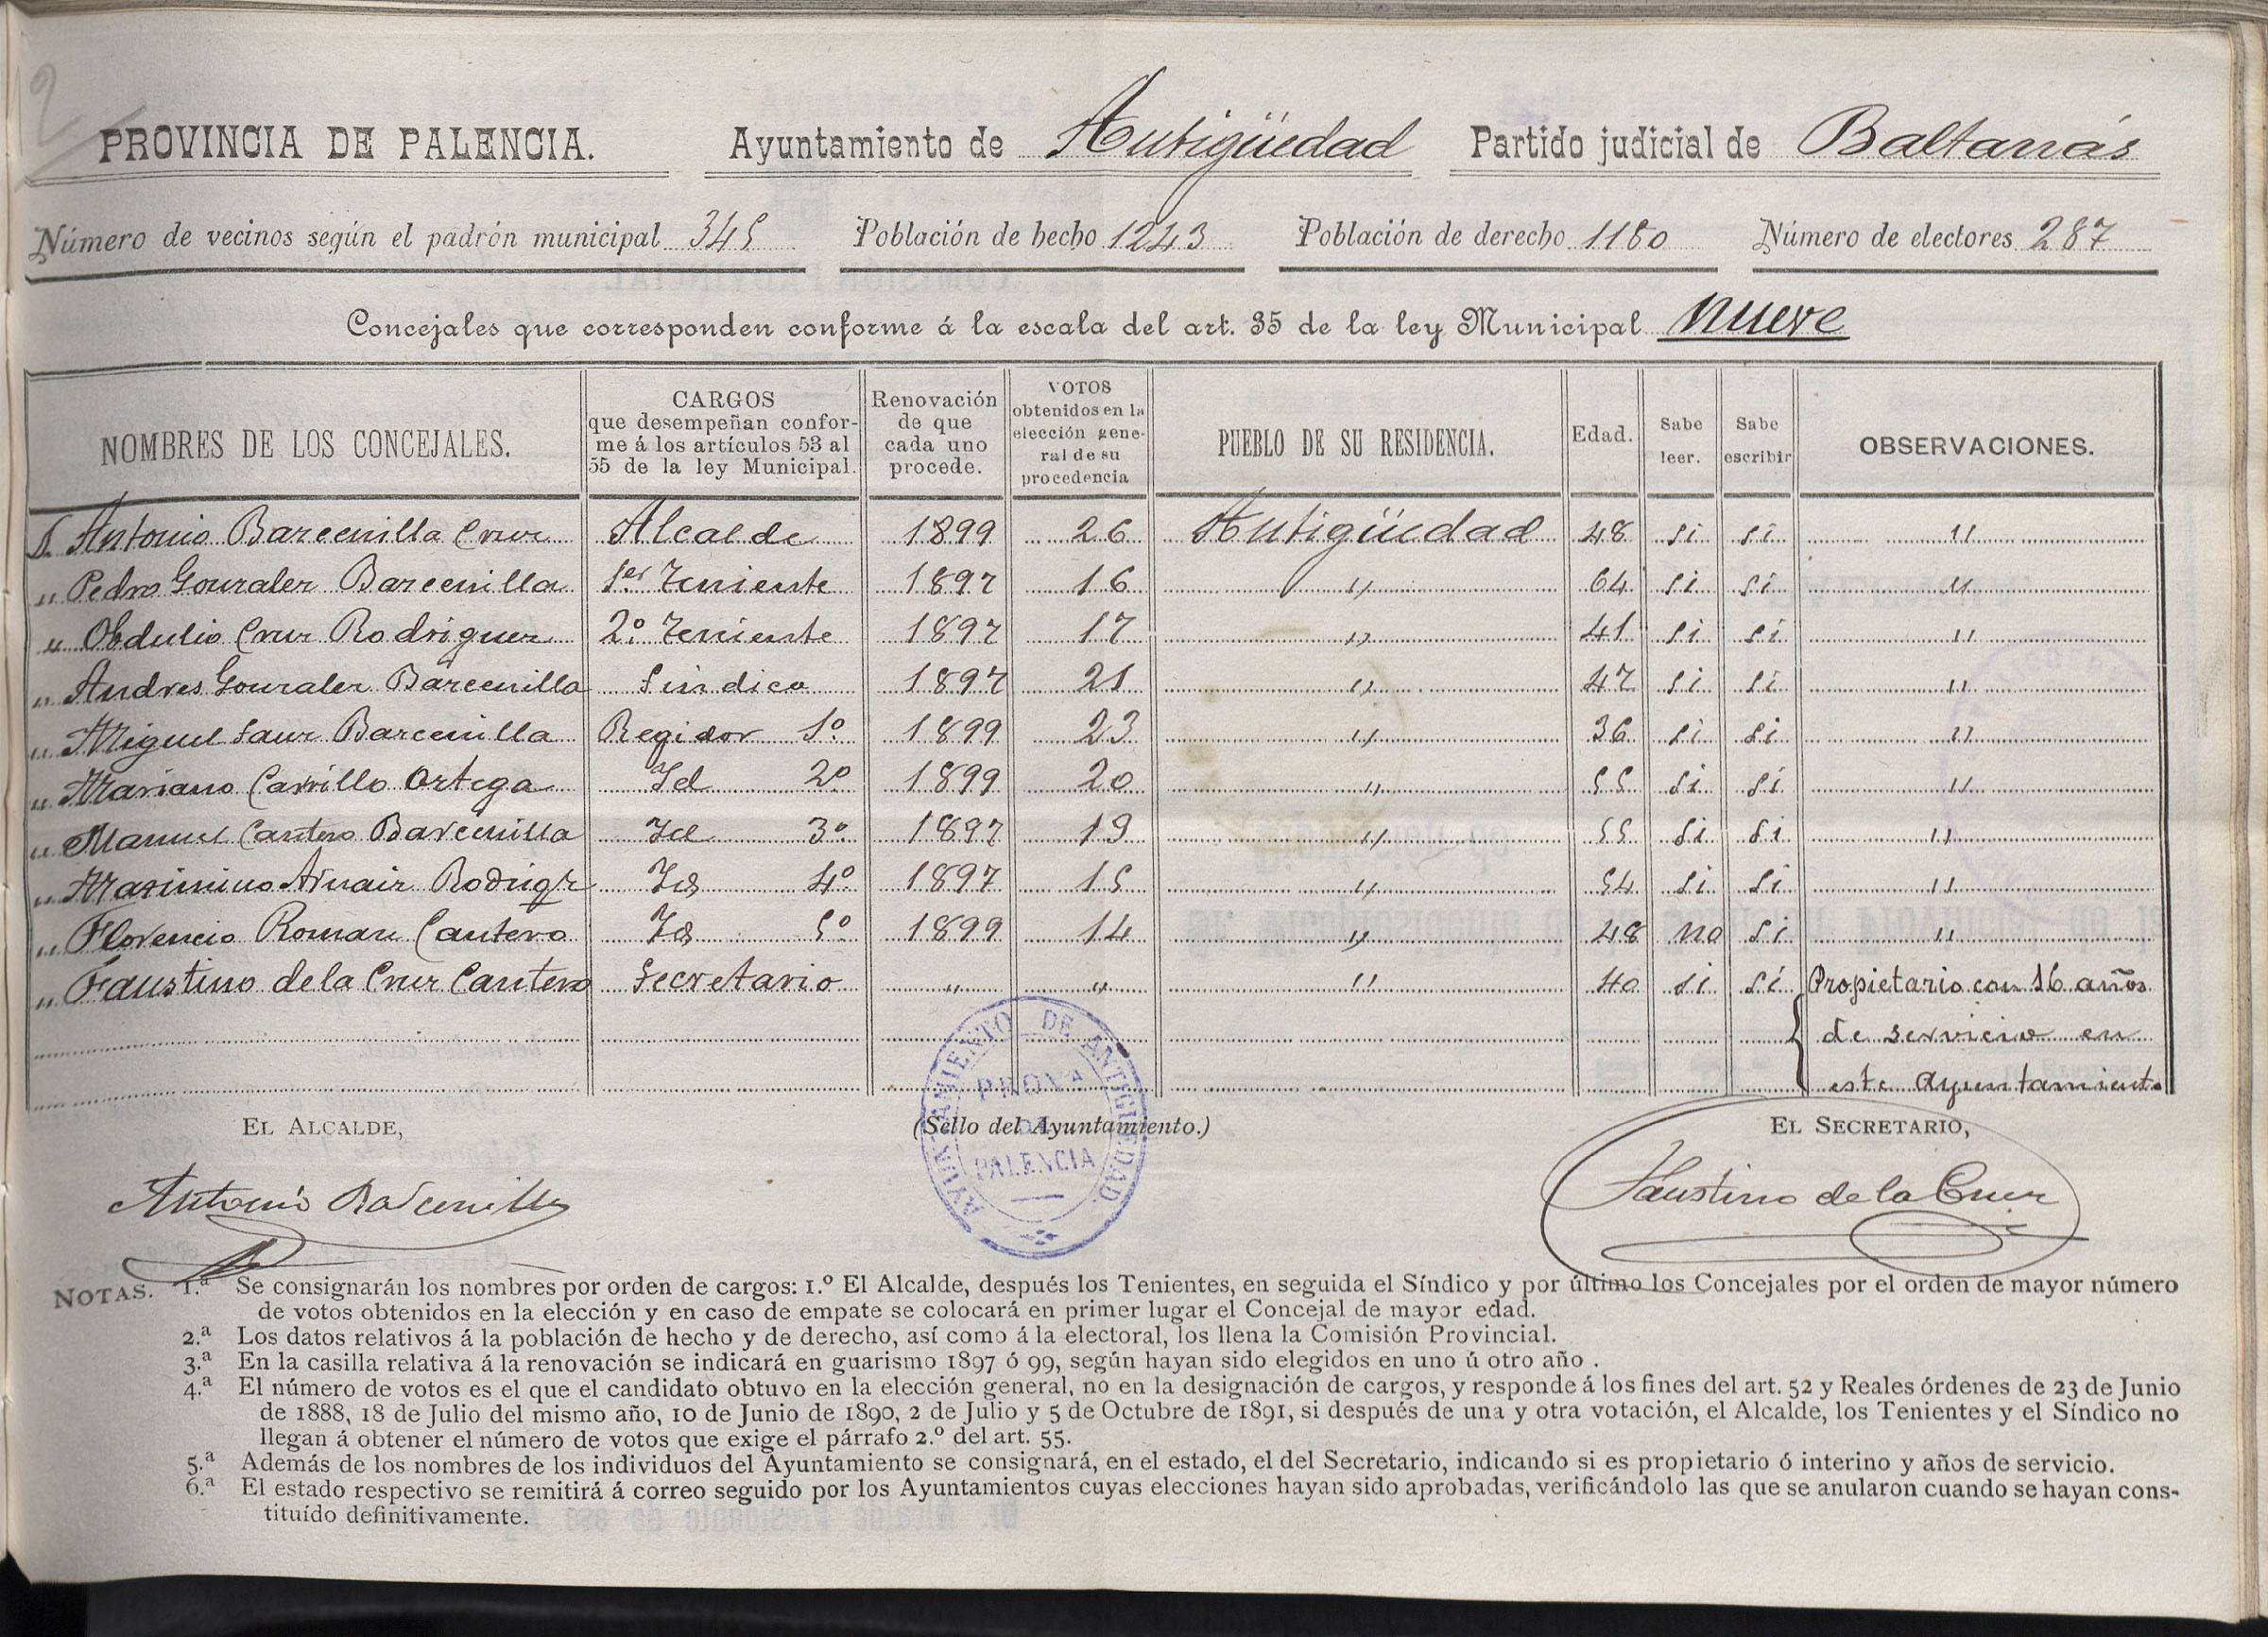 2
PROVINCIA DE PALENCIA. Ayuntamiento de Antigüedad Partido judicial de Baltanás
Número de vecinos según el padrón municipal 345 Población de hecho 1243 Población de derecho 1180 Número de electores 287
Concejales que corresponden conforme á la escala del art. 35 de la ley Municipal nueve
NOMBRES DE LOS CONCEJALES. CARGOS que desempeñan conforme á los artículos 53 al 55 de la ley Municipal. Renovación de que cada uno procede. VOTOS obtenidos en la elección general de su procedencia PUEBLO DE SU RESIDENCIA. Edad. Sabe leer. Sabe escribir OBSERVACIONES.
D. Antonio Barcenilla Cruz Alcalde 1899 26 Antigüedad 48 si si "
" Pedro Gonzalez Barcenilla 1er Teniente 1897 16 " 64 si si "
" Obdulio Cruz Rodriguez 2º Teniente 1897 17 " 41 si si "
" Andres Gonzalez Barcenilla Sindico 1897 21 " 47 si si "
" Miguel Sanz Barcenilla Regidor 1º 1899 23 " 36 si si "
" Mariano Carrillo Ortega Id 2º 1899 20 " 55 si si "
" Manuel Cantero Barcenilla Id 3º 1897 19 " 55 si si "
" Maximino Rodrigz Id 4º 1897 15 " 54 si si "
" Florencio Roman Cantero Id 5º 1899 14 " 48 no si "
" Faustino de la Cruz Cantero Secretario " " " 40 si si Propietario con 16 años
de servicio en
este ayuntamiento
EL ALCALDE, (Sello del Ayuntamiento.) EL SECRETARIO,
AYUNTAMIENTO DE ANTIGÜEDAD
PROVA
DE
PALENCIA
Antonio Barcenilla Faustino de la Cruz
NOTAS. 1.ª Se consignarán los nombres por orden de cargos: 1.º El Alcalde, después los Tenientes, en seguida el Síndico y por último los Concejales por el orden de mayor número
de votos obtenidos en la elección y en caso de empate se colocará en primer lugar el Concejal de mayor edad.
2.ª Los datos relativos á la población de hecho y de derecho, así como á la electoral, los llena la Comisión Provincial.
3.ª En la casilla relativa á la renovación se indicará en guarismo 1897 ó 99, según hayan sido elegidos en uno ú otro año .
4.ª El número de votos es el que el candidato obtuvo en la elección general, no en la designación de cargos, y responde á los fines del art. 52 y Reales órdenes de 23 de Junio
de 1888, 18 de Julio del mismo año, 10 de Junio de 1890, 2 de Julio y 5 de Octubre de 1891, si después de una y otra votación, el Alcalde, los Tenientes y el Síndico no
llegan á obtener el número de votos que exige el párrafo 2.º del art. 55.
5.ª Además de los nombres de los individuos del Ayuntamiento se consignará, en el estado, el del Secretario, indicando si es propietario ó interino y años de servicio.
6.ª El estado respectivo se remitirá á correo seguido por los Ayuntamientos cuyas elecciones hayan sido aprobadas, verificándolo las que se anularon cuando se hayan cons-
tituído definitivamente.